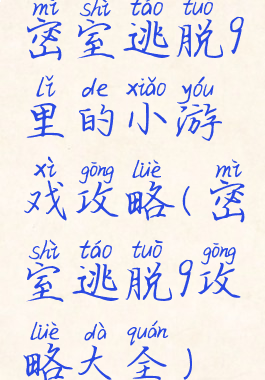 mì shì táo tuō
密室逃脱9
lǐ de xiǎo yóu
里的小游
xì gōng lüè mì
戏攻略(密
shì táo tuō gōng
室逃脱9攻
lüè dà quán
略大全)